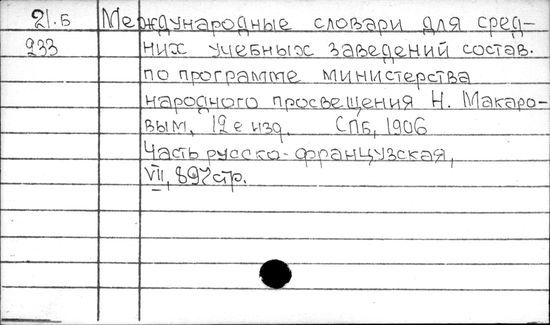 21.Б Международные словари для сред-
933 них учебных заведений состав.
по программе министерства
народного просвещения Н. Макаро-
вым, 12е изд. СПБ, 1906
Часть русско-французская,
VII, 897 стр.